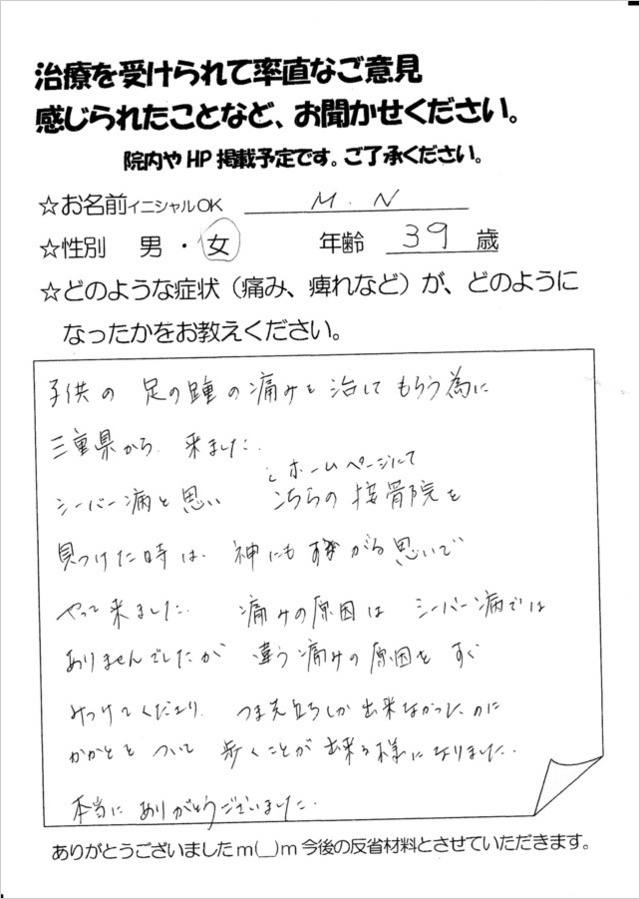 治療を受けられて率直なご意見
感じられたことなど、お聞かせください。
院内やHP掲載予定です。ご了承ください。
☆お名前イニシャルOK M.N
☆性別 男・女 年齢 39 歳
☆どのような症状（痛み、痺れなど）が、どのように
なったかをお教えください。
子供の 足の踵の痛みを治してもらう為に
三重県から 来ました。
ホームページにて
シーバー病と思い こちらの接骨院を
見つけた時は、神にもすがる思いで
やって来ました。 痛みの原因は シーバー病では
ありませんでしたが 違う痛みの原因を すぐ
みつけてくださり、 つま先立ちしか出来なかったのに
かかとを ついて 歩くことが出来る様になりました。
本当に ありがとうございました。
ありがとうございましたm(__)m今後の反省材料とさせていただきます。